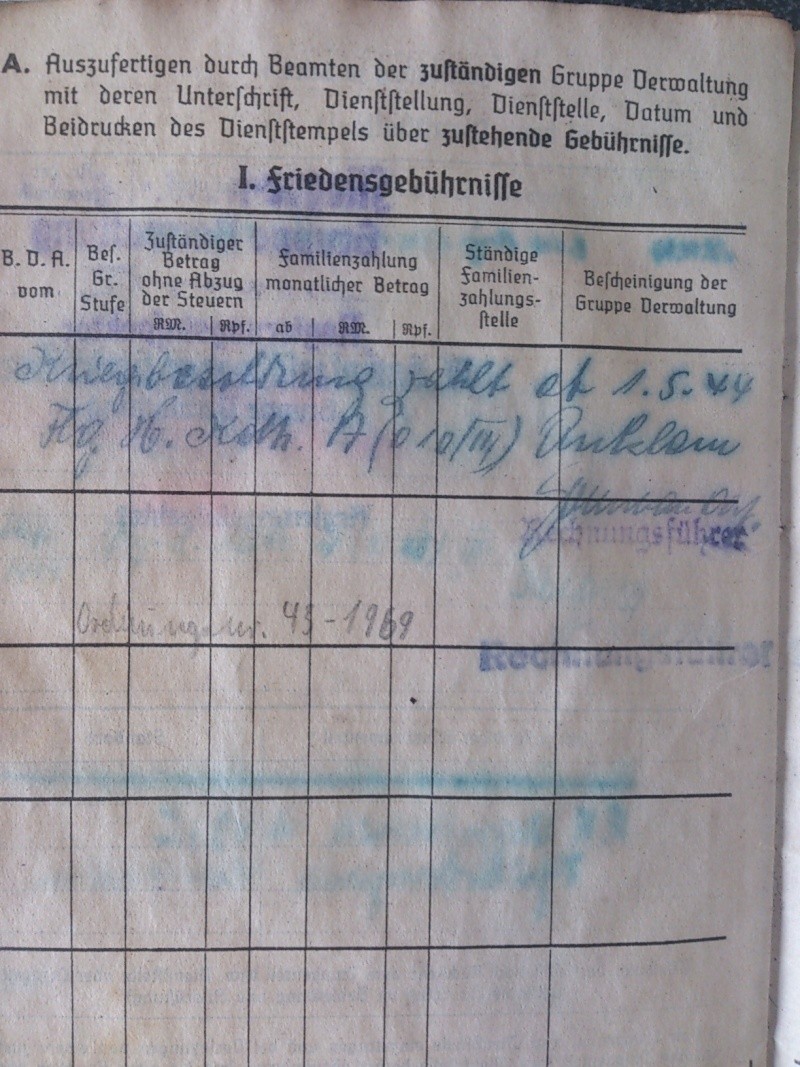 A. Auszufertigen durch Beamten der zuständigen Gruppe Verwaltung
mit deren Unterschrift, Dienststellung, Dienststelle, Datum und
Beidrucken des Dienststempels über zustehende Gebührnisse.
I. Friedensgebührnisse
B. D. A.
vom
Bes.
Gr.
Stufe
Zuständiger
Betrag
ohne Abzug
der Steuern
RM. Rpf.
Familienzahlung
monatlicher Betrag
ab RM. Rpf.
Ständige
Familien-
zahlungs-
stelle
Bescheinigung der
Gruppe Verwaltung
Kriegsbesoldung zahlt ab 1.5.44
H. A Anklam
Rechnungsführer
Ordnungsnr. 43-1969